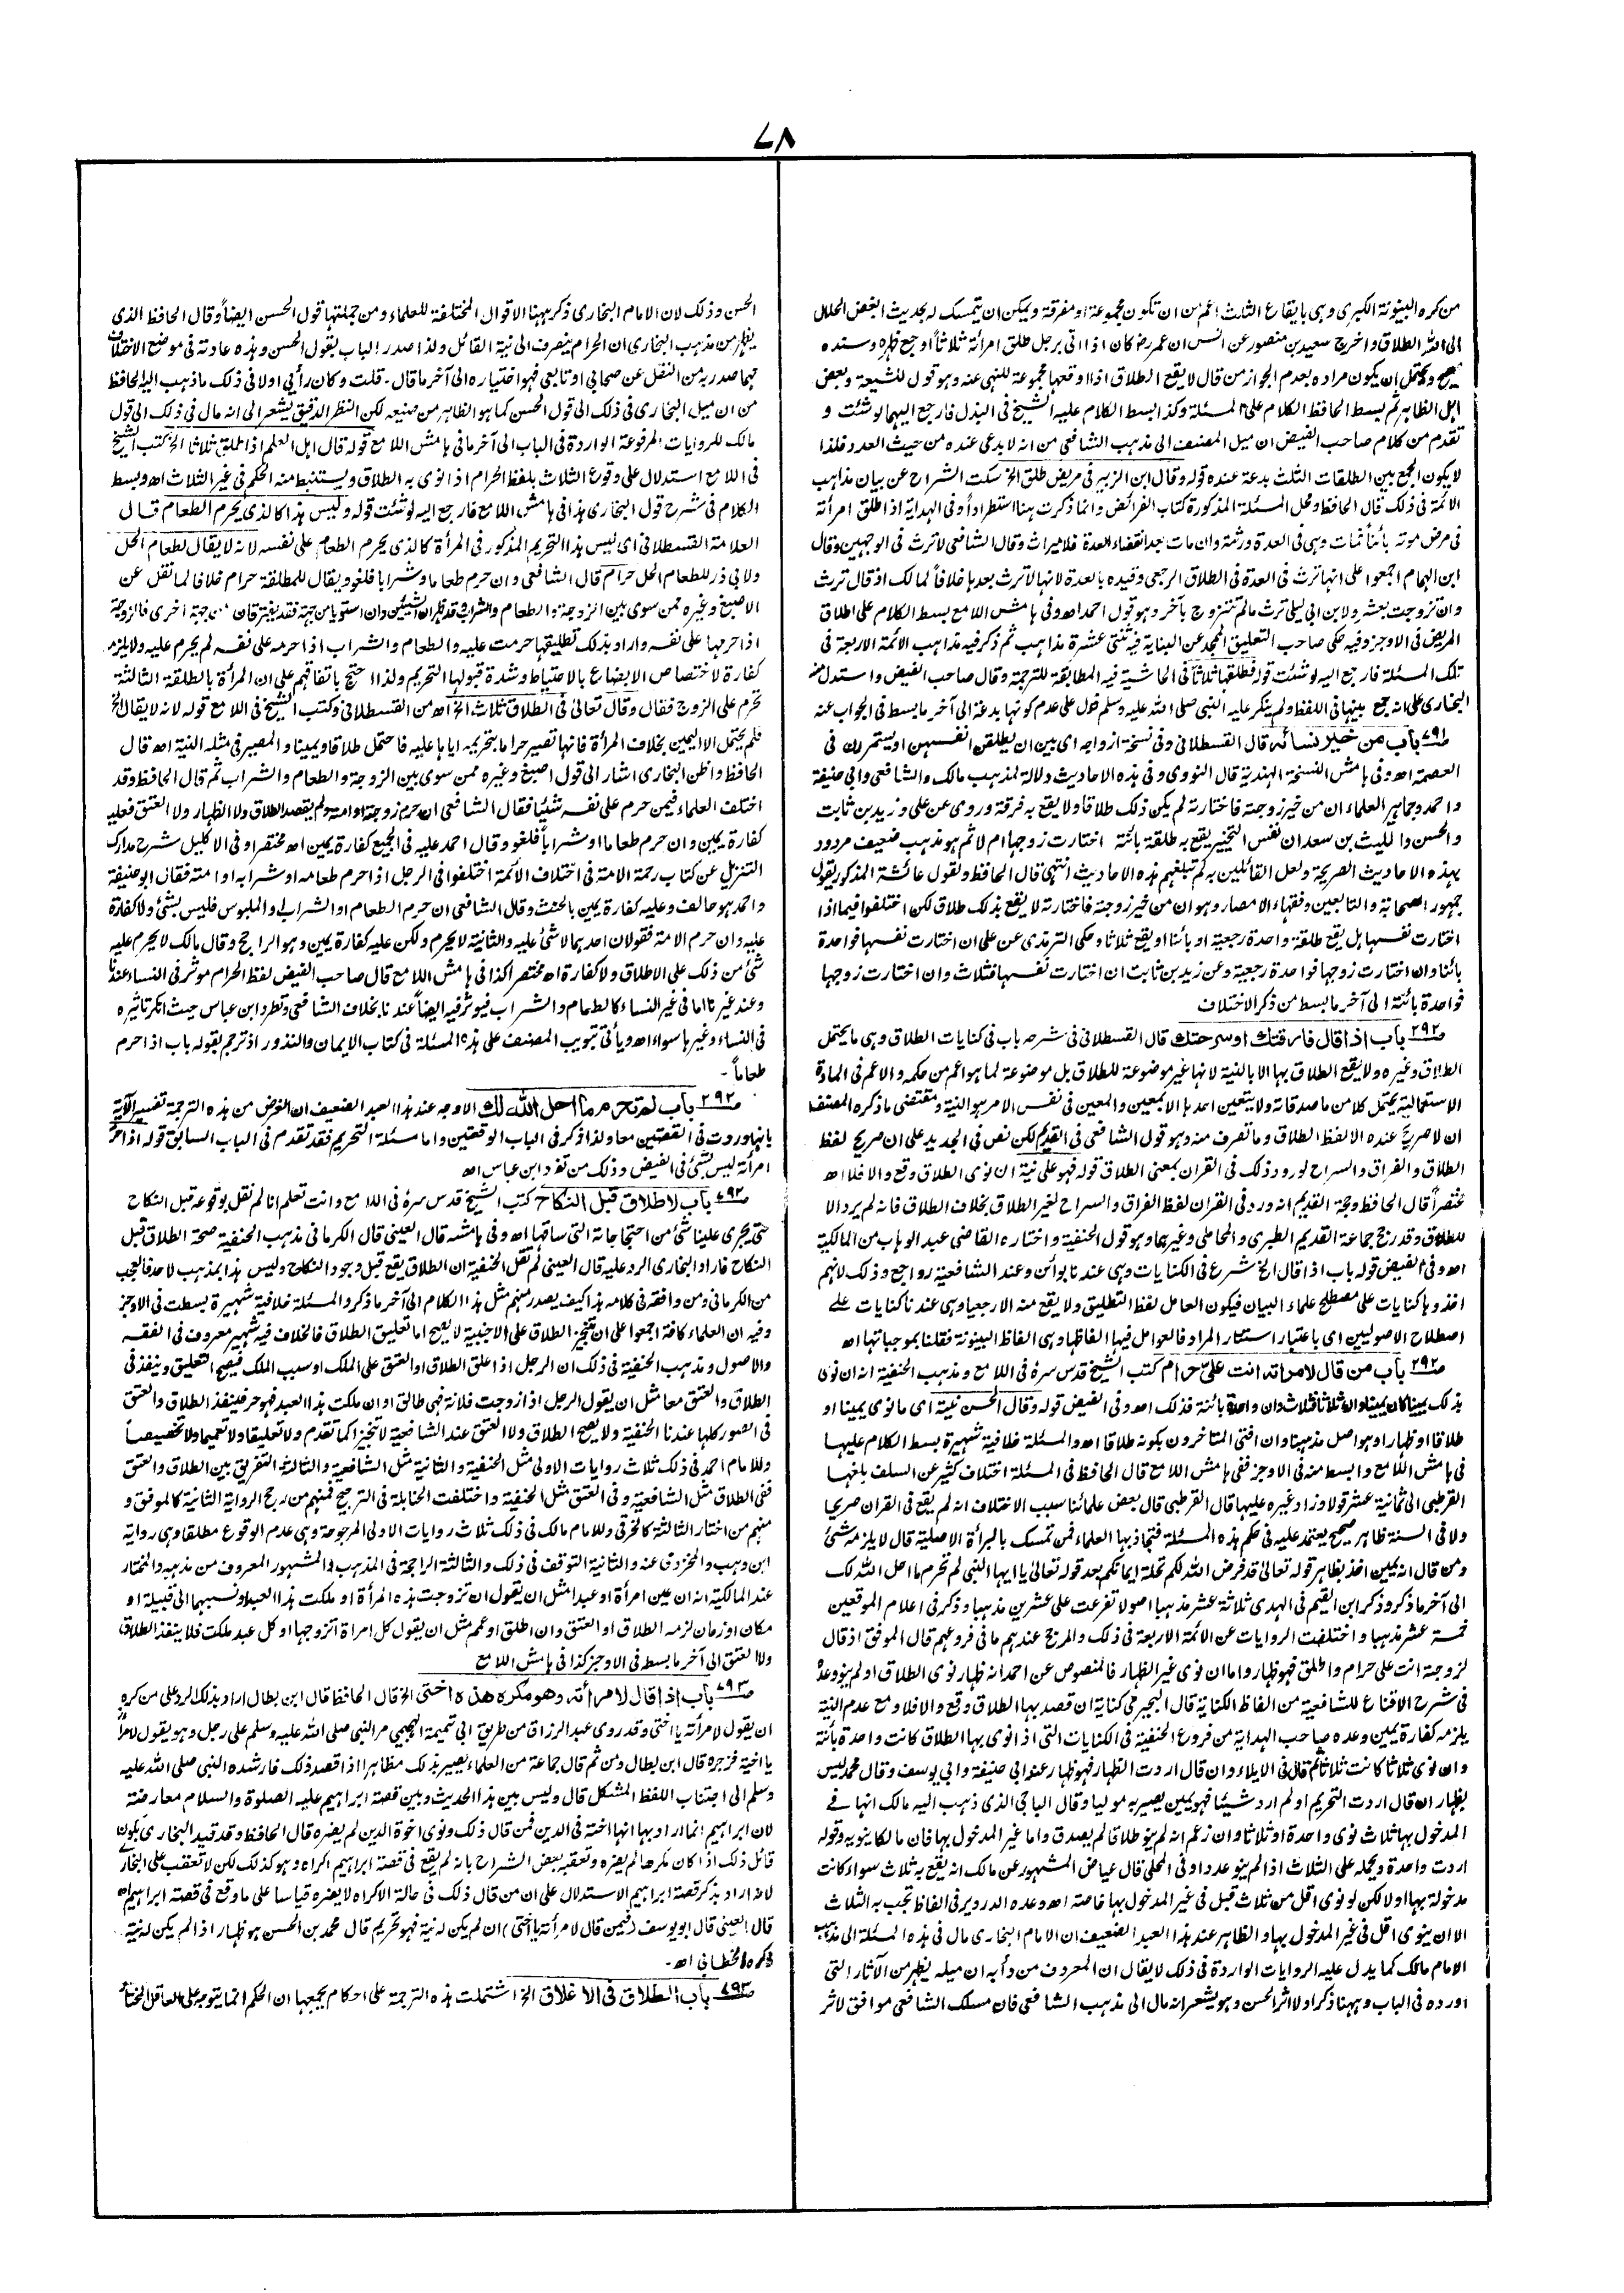 ٧٨
من كره البينونة الكبرى وهى بايقاع الثلث اعم من ان تكون مجموعة او مفرقة ويمكن ان يتمسك له بحديث ابغض الحلال
الى الله الطلاق واخرج سعيد بن منصور عن انس ان عمر رض كان اذا اتى برجل طلق امرأته ثلاثا اوجع ظهره وسنده
صحيح ويحتمل ان يكون مراده بعدم الجواز من قال لا يقع الطلاق اذا اوقعها مجموعة للنهى عنه وهو قول للشيعة وبعض
اهل الظاهر ثم بسط الحافظ الكلام على المسئلة وكذا بسط الكلام عليه الشيخ فى البذل فارجع اليهما لو شئت و
تقدم من كلام صاحب الفيض ان ميل المصنف الى مذهب الشافعى من انه لا بدعى عنده من حيث العدد فلذا
لا يكون الجمع بين الطلقات الثلث بدعة عنده قوله وقال ابن الزبير فى مريض طلق الخ سكت الشراح عن بيان مذاهب
الائمة فى ذلك قال الحافظ ومحل المسئلة المذكورة كتاب الفرائض وانما ذكرت ههنا استطرادا وفى الهداية اذا طلق امرأته
فى مرض موته بائنا فمات وهى فى العدة ورثته وان مات بعد انقضاء العدة فلا ميراث وقال الشافعى لا ترث فى الوجهين وقال
ابن الهمام اجمعوا على انها ترث فى العدة فى الطلاق الرجعى وقيده بالعدة لانها لا ترث بعدها خلافا لمالك اذ قال ترث
وان تزوجت بعشر ولابن ابى ليلى ترث مالم تتزوج بآخر وهو قول احمد اهـ وفى هامش اللامع بسط الكلام على طلاق
المريض فى الاوجز وفيه حكى صاحب التعليق الممجد عن البناية فيه ثنتى عشرة مذاهب ثم ذكر فيه مذاهب الائمة الاربعة فى
تلك المسئلة فارجع اليه لو شئت قوله فطلقها ثلاثا فى الحاشية فيه المطابقة للترجمة وقال صاحب الفيض واستدل منه
البخارى على انه جمع بينها فى اللفظ ولم ينكر عليه النبى صلى الله عليه وسلم فدل على عدم كونها بدعة الى آخر ما بسط فى الجواب عنه
٧٩١ باب من خير نسائه قال القسطلانى وفى نسخة ازواجه اى بين ان يطلقن انفسهن او يستمررن فى
العصمة اهـ وفى هامش النسخة الهندية قال النووى وفى هذه الاحاديث دلالة لمذهب مالك والشافعى وابى حنيفة
واحمد وجماهير العلماء ان من خير زوجته فاختارته لم يكن ذلك طلاقا ولا يقع به فرقة وروى عن على وزيد بن ثابت
والحسن والليث بن سعد ان نفس التخيير يقع به طلقة بائنة اختارت زوجها ام لا ثم هو مذهب ضعيف مردود
بهذه الاحاديث الصريحة ولعل القائلين به لم تبلغهم هذه الاحاديث انتهى قال الحافظ وبقول عائشة المذكور يقول
جمهور الصحابة والتابعين وفقهاء الامصار وهو ان من خير زوجته فاختارته لا يقع بذلك طلاق لكن اختلفوا فيما اذا
اختارت نفسها هل يقع طلقة واحدة رجعية او بائنا او يقع ثلاثا وحكى الترمذى عن على ان اختارت نفسها فواحدة
بائنا وان اختارت زوجها فواحدة رجعية وعن زيد بن ثابت ان اختارت نفسها فثلاث وان اختارت زوجها
فواحدة بائنة الى آخر ما بسط من ذكر الاختلاف
٧٩٢ باب اذا قال فارقتك او سرحتك قال القسطلانى فى شرحه باب فى كنايات الطلاق وهى ما يحتمل
الطلاق وغيره ولا يقع الطلاق بها الا بالنية لانها غير موضوعة للطلاق بل موضوعة لما هو اعم من حكمه والاعم فى المادة
الاستعمالية يحتمل كلا من ماصدقاته ولا يتعين احدها الا بمعين والمعين فى نفس الامر هو النية ومقتضى ما ذكره المصنف
ان لا صريح عنده الا لفظ الطلاق وما تصرف منه وهو قول الشافعى فى القديم لكن نص فى الجديد على ان صريح لفظ
الطلاق والفراق والسراح لورود ذلك فى القران بمعنى الطلاق قوله فهو على نية ان نوى الطلاق وقع والا فلا اهـ
مختصرا قال الحافظ وحجة القديم انه ورد فى القران لفظ الفراق والسراح لغير الطلاق بخلاف الطلاق فانه لم يرد الا
للطلاق وقد رجح جماعة القديم الطبرى والمحاملى وغيرهما وهو قول الحنفية واختاره القاضى عبد الوهاب من المالكية
اهـ وفى الفيض قوله باب اذا قال الخ شرع فى الكنايات وهى عندنا بوائن وعند الشافعية رواجع وذلك لانهم
اخذوها كنايات على مصطلح علماء البيان فيكون العامل لفظ التطليق ولا يقع منه الا رجعيا وهى عندنا كنايات على
اصطلاح الاصوليين اى باعتبار استتار المراد فالعوامل فيها الفاظها وهى الفاظ البينونة فقلنا بموجباتها اهـ
٧٩٢ باب من قال لامراته انت علىّ حرام كتب الشيخ قدس سره فى اللامع ومذهب الحنفية انه ان نوى
بذلك يمينا كان يمينا وان ثلاثا فثلاث وان واحدة بائنة فذلك اهـ وفى الفيض قوله وقال الحسن نيته اى ما نوى يمينا او
طلاقا او ظهارا وهو اصل مذهبنا وان افتى المتاخرون بكونه طلاقا اهـ والمسئلة خلافية شهيرة بسط الكلام عليها
فى هامش اللامع وابسط منه فى الاوجز ففى هامش اللامع قال الحافظ فى المسئلة اختلاف كثير عن السلف بلغها
القرطبى الى ثمانية عشر قولا وزاد غيره عليها قال القرطبى قال بعض علمائنا سبب الاختلاف انه لم يقع فى القران صريحا
ولا فى السنة ظاهر صحيح يعتمد عليه فى حكم هذه المسئلة فتجاذبها العلماء فمن تمسك بالبرأة الاصلية قال لا يلزمه شئ
ومن قال انه يمين اخذ بظاهر قوله تعالى قد فرض الله لكم تحلة ايمانكم بعد قوله تعالى يا ايها النبى لم تحرم ما احل الله لك
الى آخر ما ذكر وذكر ابن القيم فى الهدى ثلاثة عشر مذهبا اصولا تفرعت على عشرين مذهبا وذكر فى اعلام الموقعين
خمسة عشر مذهبا واختلفت الروايات عن الائمة الاربعة فى ذلك والمرجح عندهم ما فى فروعهم قال الموفق اذ قال
لزوجته انت على حرام واطلق فهو ظهار واما ان نوى غير الظهار فالمنصوص عن احمد انه ظهار نوى الطلاق او لم ينو وعده
فى شرح الاقناع للشافعية من الفاظ الكناية قال البجيرمى كناية ان قصد بها الطلاق وقع والا فلا ومع عدم النية
يلزمه كفارة يمين وعده صاحب الهداية من فروع الحنفية فى الكنايات التى اذا نوى بها الطلاق كانت واحدة بائنة
وان نوى ثلاثا كانت ثلاثا ثم قال فى الايلاء وان قال اردت الظهار فهو ظهار عند ابى حنيفة وابى يوسف وقال محمد ليس
بظهار ان قال اردت التحريم او لم ارد شيئا فهو يمين يصير به موليا وقال الباجى الذى ذهب اليه مالك انها فى
المدخول بها ثلاث نوى واحدة او ثلاثا وان زعم انه لم ينو طلاقا لم يصدق واما غير المدخول بها فان مالكا ينويه وقوله
اردت واحدة ويحمله على الثلاث اذا لم ينو عددا وفى المحلى قال عياض المشهور عن مالك انه يقع به ثلاث سواء كانت
مدخولة بها او لا لكن لو نوى اقل من ثلاث قبل فى غير المدخول بها خاصة اهـ وعده الدردير فى الفاظ تجب به الثلاث
الا ان ينوى اقل فى غير المدخول بها والظاهر عند هذا العبد الضعيف ان الامام البخارى مال فى هذه المسئلة الى مذهب
الامام مالك كما يدل عليه الروايات الواردة فى ذلك لا يقال ان المعروف من دأبه ان ميله يظهر من الآثار التى
اورده فى الباب وههنا ذكر اولا اثر الحسن وهو يشعر انه مال الى مذهب الشافعى فان مسلك الشافعى موافق لاثر
الحسن وذلك لان الامام البخارى ذكر ههنا الاقوال المختلفة للعلماء ومن جملتها قول الحسن ايضا وقال الحافظ الذى
يظهر من مذهب البخارى ان الحرام ينصرف الى نية القائل ولذا صدر الباب بقول الحسن وهذه عادته فى موضع الاختلاف
مهما صدر به من النقل عن صحابى او تابعى فهو اختياره الى آخر ما قال۔ قلت وكان رأيى اولا فى ذلك ما ذهب اليه الحافظ
من ان ميل البخارى فى ذلك الى قول الحسن كما هو الظاهر من صنيعه لكن النظر الدقيق يشعر الى انه مال فى ذلك الى قول
مالك للروايات المرفوعة الواردة فى الباب الى آخر ما فى هامش اللامع قوله قال اهل العلم اذا طلق ثلاثا الخ كتب الشيخ
فى اللامع استدلال على وقوع الثلاث بلفظ الحرام اذا نوى به الطلاق ويستنبط منه الحكم فى غير الثلاث اهـ وبسط
الكلام فى شرح قول البخارى هذا فى هامش اللامع فارجع اليه لو شئت قوله وليس هذا كالذى يحرم الطعام قال
العلامة القسطلانى اى ليس هذا التحريم المذكور فى المرأة كالذى يحرم الطعام على نفسه لانه لا يقال لطعام الحل
ولابى ذر للطعام الحل حرام قال الشافعى وان حرم طعاما وشرابا فلغو ويقال للمطلقة حرام خلافا لما نقل عن
الاصبغ وغيره ممن سوى بين الزوجة والطعام والشراب قد ظهر ان الشيئين وان استويا من جهة فقد يفترقان من جهة اخرى فالزوجة
اذا حرمها على نفسه واراد بذلك تطليقها حرمت عليه والطعام والشراب اذا حرمه على نفسه لم يحرم عليه ولا يلزمه
كفارة لاختصاص الابضاع بالاحتياط وشدة قبولها التحريم ولذا احتج باتفاقهم على ان المرأة بالطلقة الثالثة
تحرم على الزوج فقال وقال تعالى فى الطلاق ثلاث الخ اهـ من القسطلانى وكتب الشيخ فى اللامع قوله لانه لا يقال الخ
فلم يحتمل الا اليمين بخلاف المرأة فانها تصير حراما بتحريمه اياها عليه فاحتمل طلاقا ويمينا والمصير فى مثله النية اهـ قال
الحافظ واظن البخارى اشار الى قول اصبغ وغيره ممن سوى بين الزوجة والطعام والشراب ثم قال الحافظ وقد
اختلف العلماء فيمن حرم على نفسه شيئا فقال الشافعى ان حرم زوجته او امته ولم يقصد الطلاق ولا الظهار ولا العتق فعليه
كفارة يمين وان حرم طعاما او شرابا فلغو وقال احمد عليه فى الجميع كفارة يمين اهـ مختصرا وفى الاكليل شرح مدارك
التنزيل عن كتاب رحمة الامة فى اختلاف الائمة اختلفوا فى الرجل اذا حرم طعامه او شرابه او امته فقال ابو حنيفة
واحمد هو حالف وعليه كفارة يمين بالحنث وقال الشافعى ان حرم الطعام او الشراب او الملبوس فليس بشئ ولا كفارة
عليه وان حرم الامة فقولان احدهما لا شئ عليه والثانية لا يحرم ولكن عليه كفارة يمين وهو الراجح وقال مالك لا يحرم عليه
شئ من ذلك على الاطلاق ولا كفارة اهـ مختصرا كذا فى هامش اللامع قال صاحب الفيض لفظ الحرام موثر فى النساء عندنا
وعند غيرنا اما فى غير النساء كالطعام والشراب فيوثر فيه ايضا عندنا بخلاف الشافعى وتفرد ابن عباس حيث انكر تاثيره
فى النساء وغيرها سواء اهـ ويأتى تبويب المصنف على هذه المسئلة فى كتاب الايمان والنذور اذ ترجم بقوله باب اذا حرم
طعاما۔
٧٩٢ باب لم تحرم ما احل الله لك الاوجه عند هذا العبد الضعيف ان الغرض من هذه الترجمة تفسير الآية
بانها وردت فى القصتين معا ولذا ذكر فى الباب الوقعتين واما مسئلة التحريم فقد تقدم فى الباب السابق قوله اذا حرم
امرأته ليس بشئ فى الفيض وذلك من تفرد ابن عباس اهـ
٧٩٣ باب لا طلاق قبل النكاح كتب الشيخ قدس سره فى اللامع وانت تعلم انا لم نقل بوقوعه قبل النكاح
حتى يجرى علينا شئ من احتجاجاته التى ساقها اهـ وفى هامشه قال العينى قال الكرمانى مذهب الحنفية صحة الطلاق قبل
النكاح فاراد البخارى الرد عليه قال العينى لم تقل الحنفية ان الطلاق يقع قبل وجود النكاح وليس هذا بمذهب لاحد فالعجب
من الكرمانى ومن وافقه فى كلامه هذا كيف يصدر منهم مثل هذا الكلام الى آخر ما ذكر والمسئلة خلافية شهيرة بسطت فى الاوجز
وفيه ان العلماء كافة اجمعوا على ان تنجيز الطلاق على الاجنبية لا يصح اما تعليق الطلاق فالخلاف فيه شهير معروف فى الفقه
والاصول ومذهب الحنفية فى ذلك ان الرجل اذا علق الطلاق او العتق على الملك او سبب الملك فيصح التعليق وينفذ فى
الطلاق والعتق معا مثل ان يقول الرجل اذا زوجت فلانة فهى طالق او ان ملكت هذا العبد فهو حر فينفذ الطلاق والعتق
فى الصور كلها عندنا الحنفية ولا يصح الطلاق ولا العتق عند الشافعية لا تنجيزا كما تقدم ولا تعليقا ولا تعميما ولا تخصيصا
وللامام احمد فى ذلك ثلاث روايات الاولى مثل الحنفية والثانية مثل الشافعية والثالثة التفريق بين الطلاق والعتق
ففى الطلاق مثل الشافعية وفى العتق مثل الحنفية واختلفت الحنابلة فى الترجيح فمنهم من رجح الرواية الثانية كالموفق و
منهم من اختار الثالثة كالخرقى وللامام مالك فى ذلك ثلاث روايات الاولى المرجوحة وهى عدم الوقوع مطلقا وهى رواية
ابن وهب والمخزومى عنه والثانية التوقف فى ذلك والثالثة الراجحة فى المذهب والمشهور المعروف من مذهبه والمختار
عند المالكية انه ان عين امرأة او عبدا مثل ان يقول ان تزوجت هذه المرأة او ملكت هذا العبد او نسبهما الى قبيلة او
مكان او زمان لزمه الطلاق او العتق وان اطلق او عمم مثل ان يقول كل امرأة اتزوجها او كل عبد ملكت فلا ينفذ الطلاق
ولا العتق الى آخر ما بسط فى الاوجز كذا فى هامش اللامع
٧٩٣ باب اذا قال لامرأته وهو مكره هذه اختى الخ قال الحافظ قال ابن بطال اراد بذلك الرد على من كره
ان يقول لامرأته يا اختى وقد روى عبد الرزاق من طريق ابى تميمة الهجيمى مر النبى صلى الله عليه وسلم على رجل وهو يقول لامرأته
يا اخية فزجره قال ابن بطال ومن ثم قال جماعة من العلماء يصير بذلك مظاهرا اذا قصد ذلك فارشده النبى صلى الله عليه
وسلم الى اجتناب اللفظ المشكل قال وليس بين هذا الحديث وبين قصة ابراهيم عليه الصلوة والسلام معارضة
لان ابراهيم انما اراد بها انها اخته فى الدين فمن قال ذلك ونوى اخوة الدين لم يضره قال الحافظ وقد قيد البخارى بكون
قائل ذلك اذا كان مكرها لم يضره وتعقبه بعض الشراح بانه لم يقع فى قصة ابراهيم اكراه وهو كذلك لكن لا تعقب على البخارى
لانه اراد بذكر قصة ابراهيم الاستدلال على ان من قال ذلك فى حالة الاكراه لا يضره قياسا على ما وقع فى قصة ابراهيم اهـ
قال العينى قال ابو يوسف فيمن قال لامرأته يا اختى ان لم يكن له نية فهو تحريم قال محمد بن الحسن هو ظهار اذا لم يكن له نية
ذكره الخطابى اهـ۔
٧٩٣ باب الطلاق فى الاغلاق الخ اشتملت هذه الترجمة على احكام يجمعها ان الحكم انما يتوجه على العاقل المختار